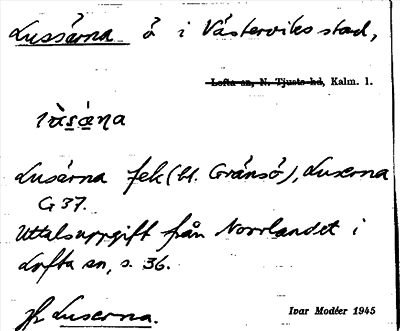 Lussärna ö i Västerviks stad,
Lofta sn, N. Tjusts hd, Kalm. l.
Lusärna fek (bl. Gränsö), Luserna
G 37.
Uttalsuppgift från Norrlandet i
Lofta sn, s. 36.
Jfr Luserna.
Ivar Modéer 1945